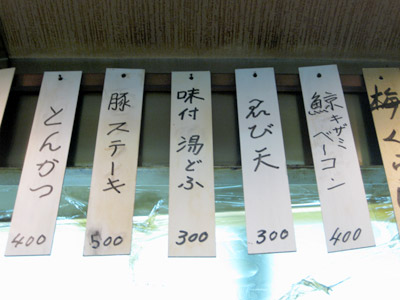 とんかつ
400
豚ステーキ
500
味付湯どふ
300
えび天
300
鯨キザミベーコン
400
梅